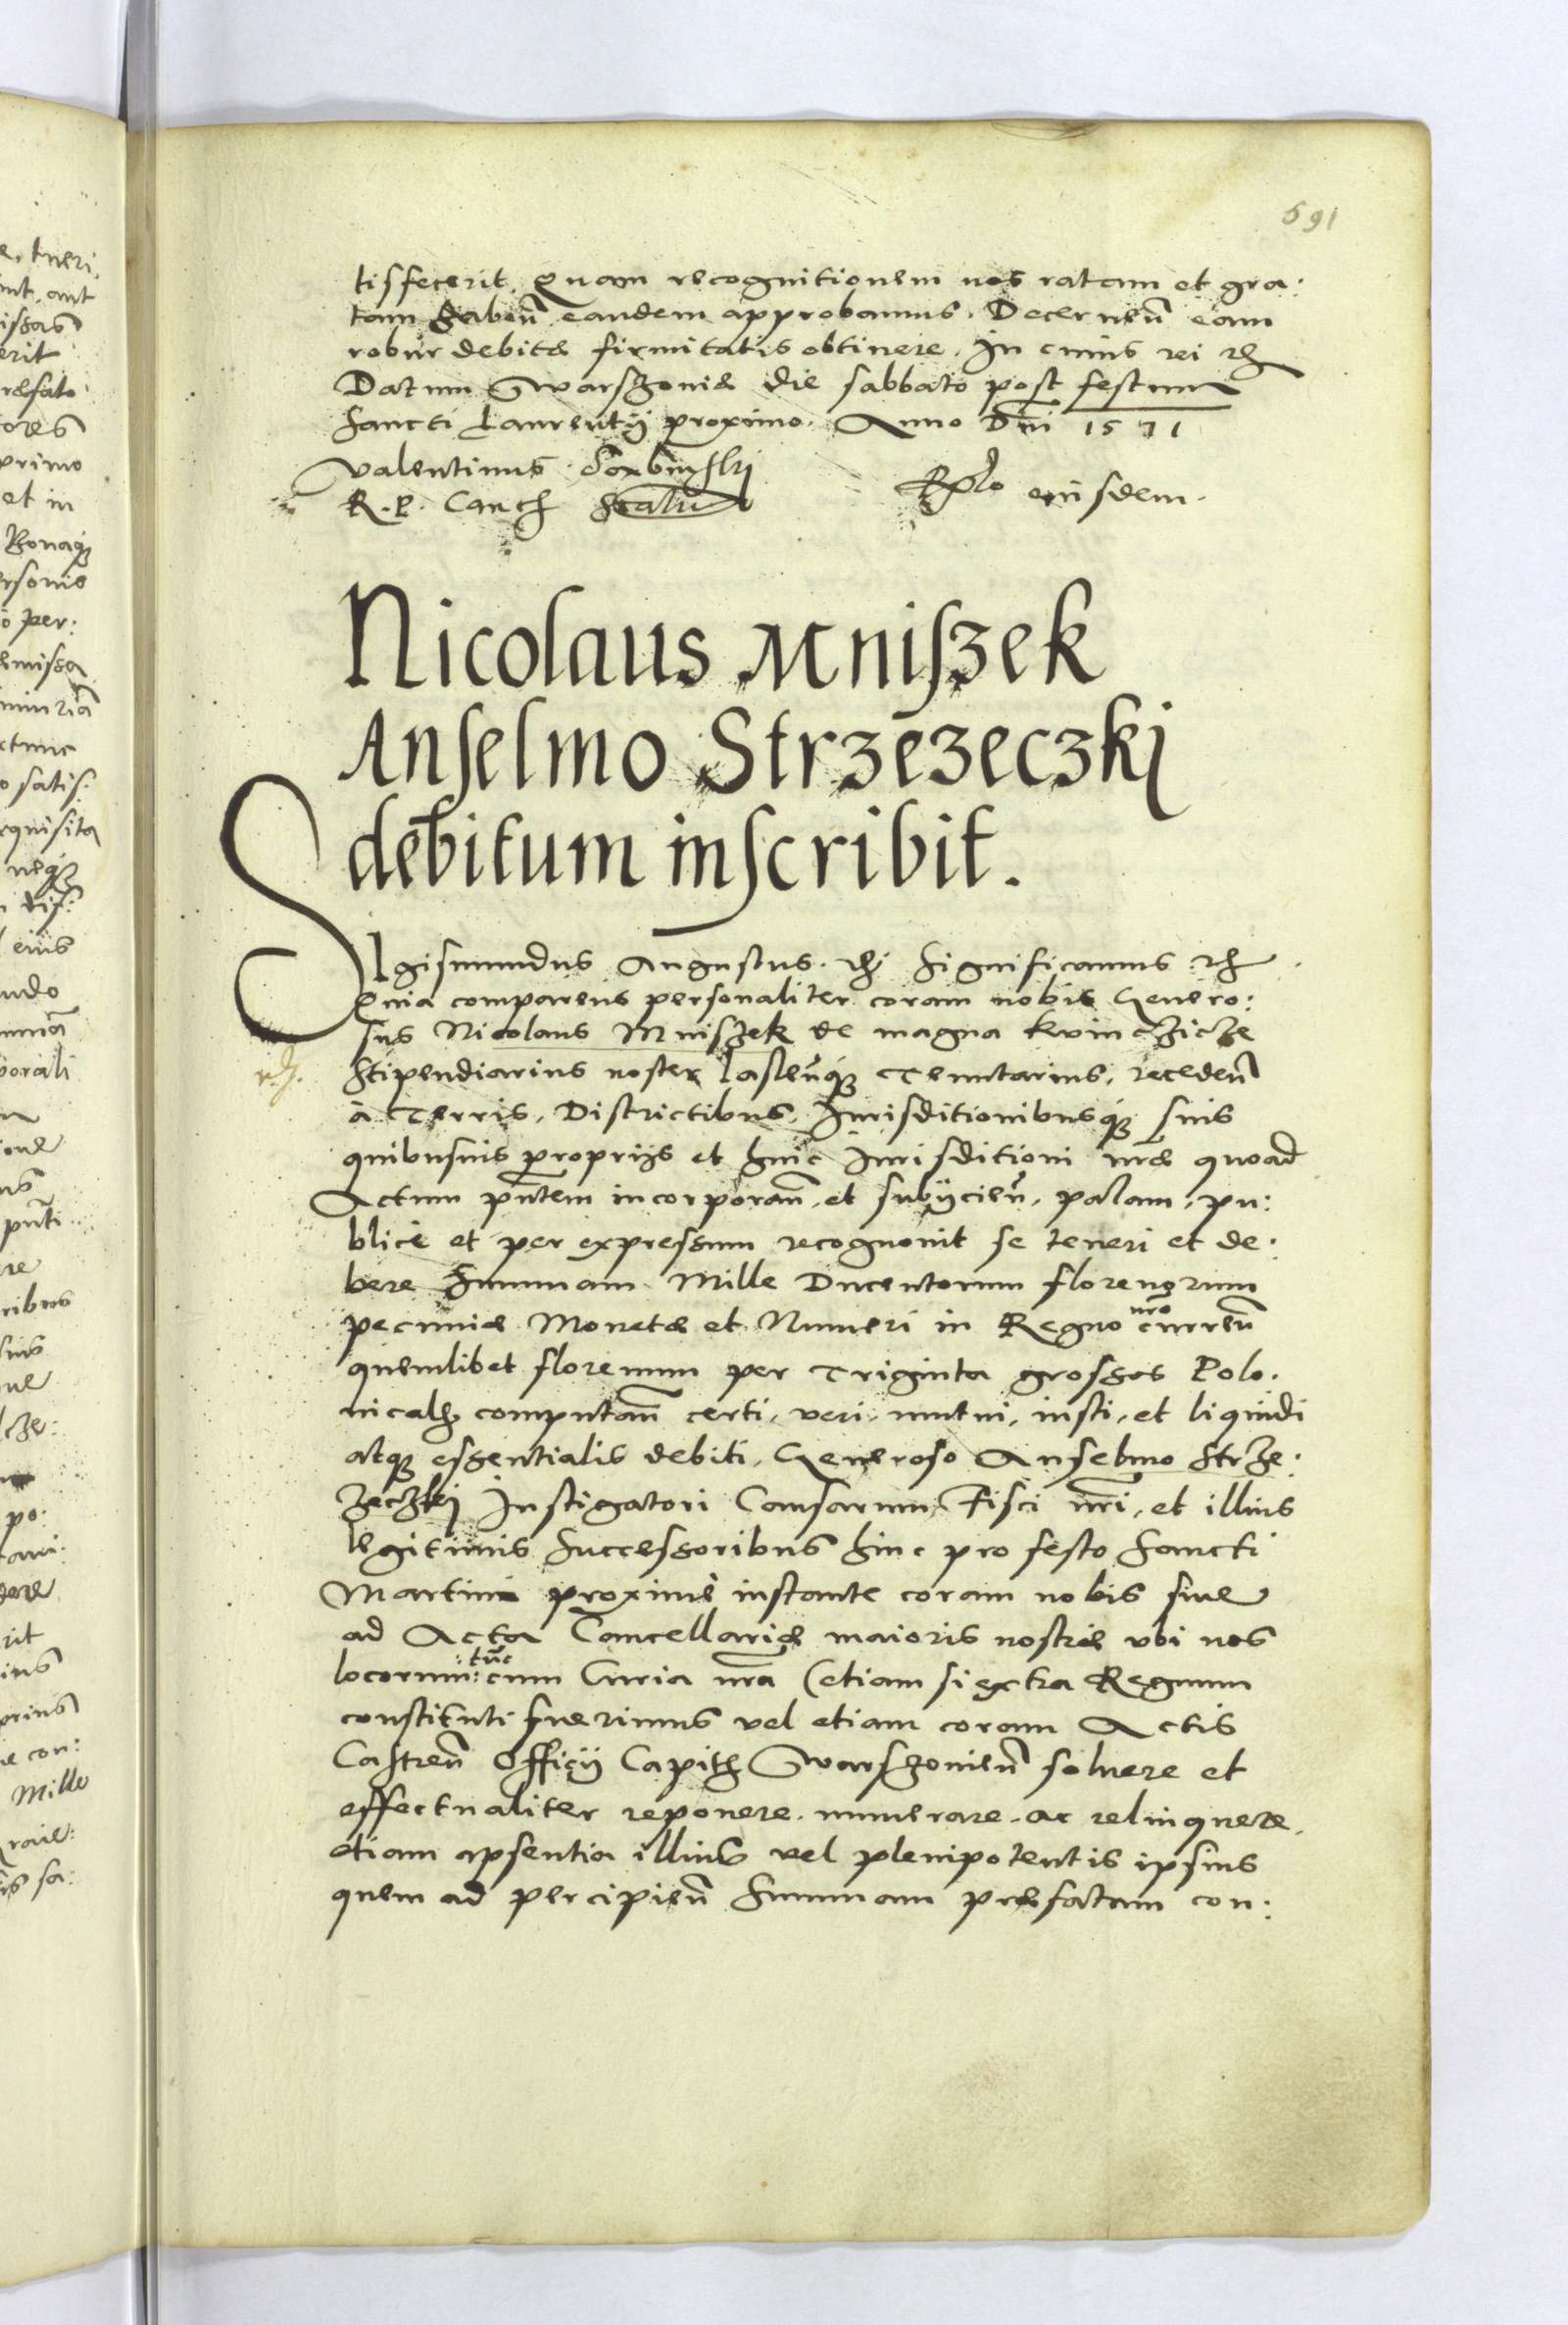 591
tisfecerit. Quam recognitionem nos ratam et gra:
tam haben̄ eandem approbamus. Decernen̄ eam
robur debitæ firmitatis obtinere. In cuius rei etc
Datum Warszoviæ die sabbato post festum
Sancti Laurentij proximo. Anno Dn̄i 1571
Valentinus Dembinski
R. P. Canc
Rlo eiusdem.
Nicolaus Mniszek
Anselmo Strzezeczki
debitum inscribit.
SIgismundus Augustus. etc Significamus etc
Quia comparens personaliter coram nobis Genero:
sus Nicolaus Mniszek de magna Kunczicze
Stipendiarius noster Laslen̄q́ue Tenutarius, receden̄
à Terris, Districtibus, Iurisditionibusq́ue suis
quibusuis proprijs et huic Iurisditioni nr̄æ quoad
Actum pn̄tem incorporan̄. et subijcien̄. palam, pu:
blicè et per expressum recognouit se teneri et de:
bere Summam Mille Ducentorum florenorum
pecuniæ Monetæ et Numeri in Regno nr̄o curren̄
quemlibet florenum per Triginta grossos Polo:
nical computan̄ certi, veri, mutui, iusti, et liquidi
atq́ue essentialis debiti, Generoso Anselmo Strze:
zeczki Instigatori Causarum Fisci nr̄i, et illius
legitimis Successoribus hinc pro festo Sancti
Martini proximè instante coram nobis siue
ad Acta Cancellariæ maioris nostræ vbi nos
locorum: tūc cum Curia nr̄a (etiam si extra Regnum
constituti fuerimus vel etiam coram Actis
Castren̄ Officij Capit Warszouien̄ soluere et
effectualiter reponere. numerare. ac relinquere.
etiam apsentia illius vel plenipotentis ipsius
quem ad percipien̄ Summam præfatam con: